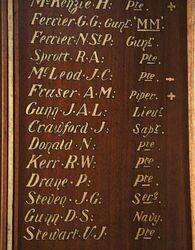 McKenzie·H: Pte. +
Ferrier·G·G: Gunr. "MM"
Ferrier·N·St P: Gunr.
Sprott·R·A: Pte.
McLeod·J·C: Pte. +
Fraser·A·M: Piper. +
Gunn·J·A·L: Lieut.
Crawford·J: Sapr.
Donald·N: Pte.
Kerr·R·W: Pte
Drane·P: Pte.
Steven·J·G: Serg.
Gunn·D·S: Navy.
Stewart·V·J: Pte.